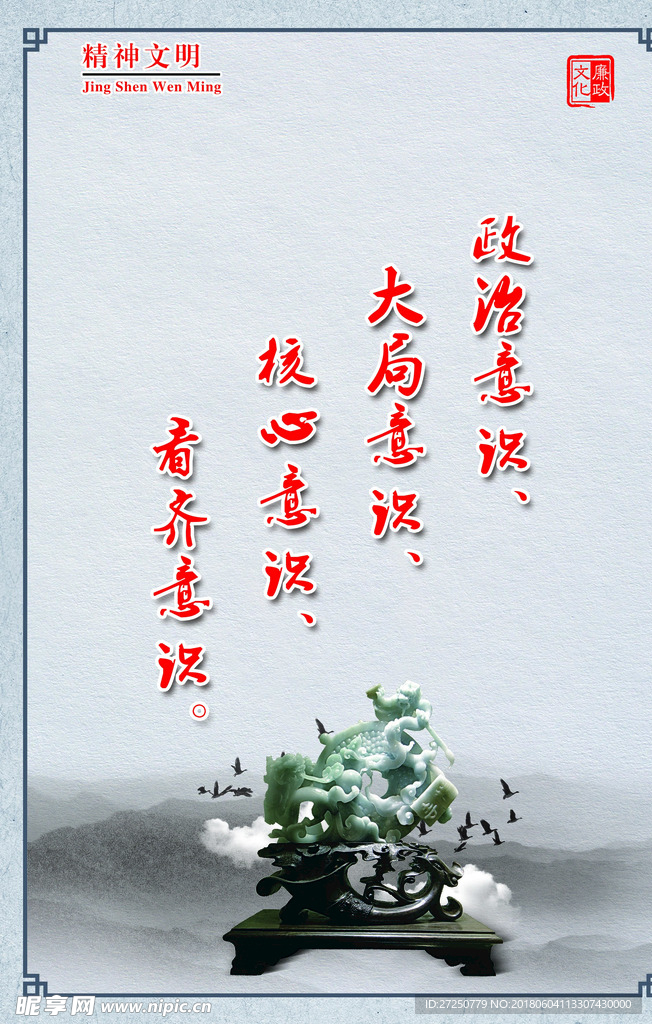 精神文明
Jing Shen Wen Ming
廉政
文化
政治意识、
大局意识、
核心意识、
看齐意识。
昵享网 www.nipic.cn
ID:27250779 NO:20180604113307430000